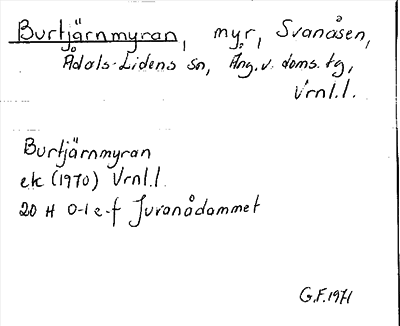 Burtjärnmyran, myr, Svanåsen,
Ådals-Lidens sn, Ång. v. doms. tg,
Vrnl.l.
Burtjärnmyran
ek (1970) Vrnl.l.
20 H 0-1 e-f Juvanådammet
G.F. 1971